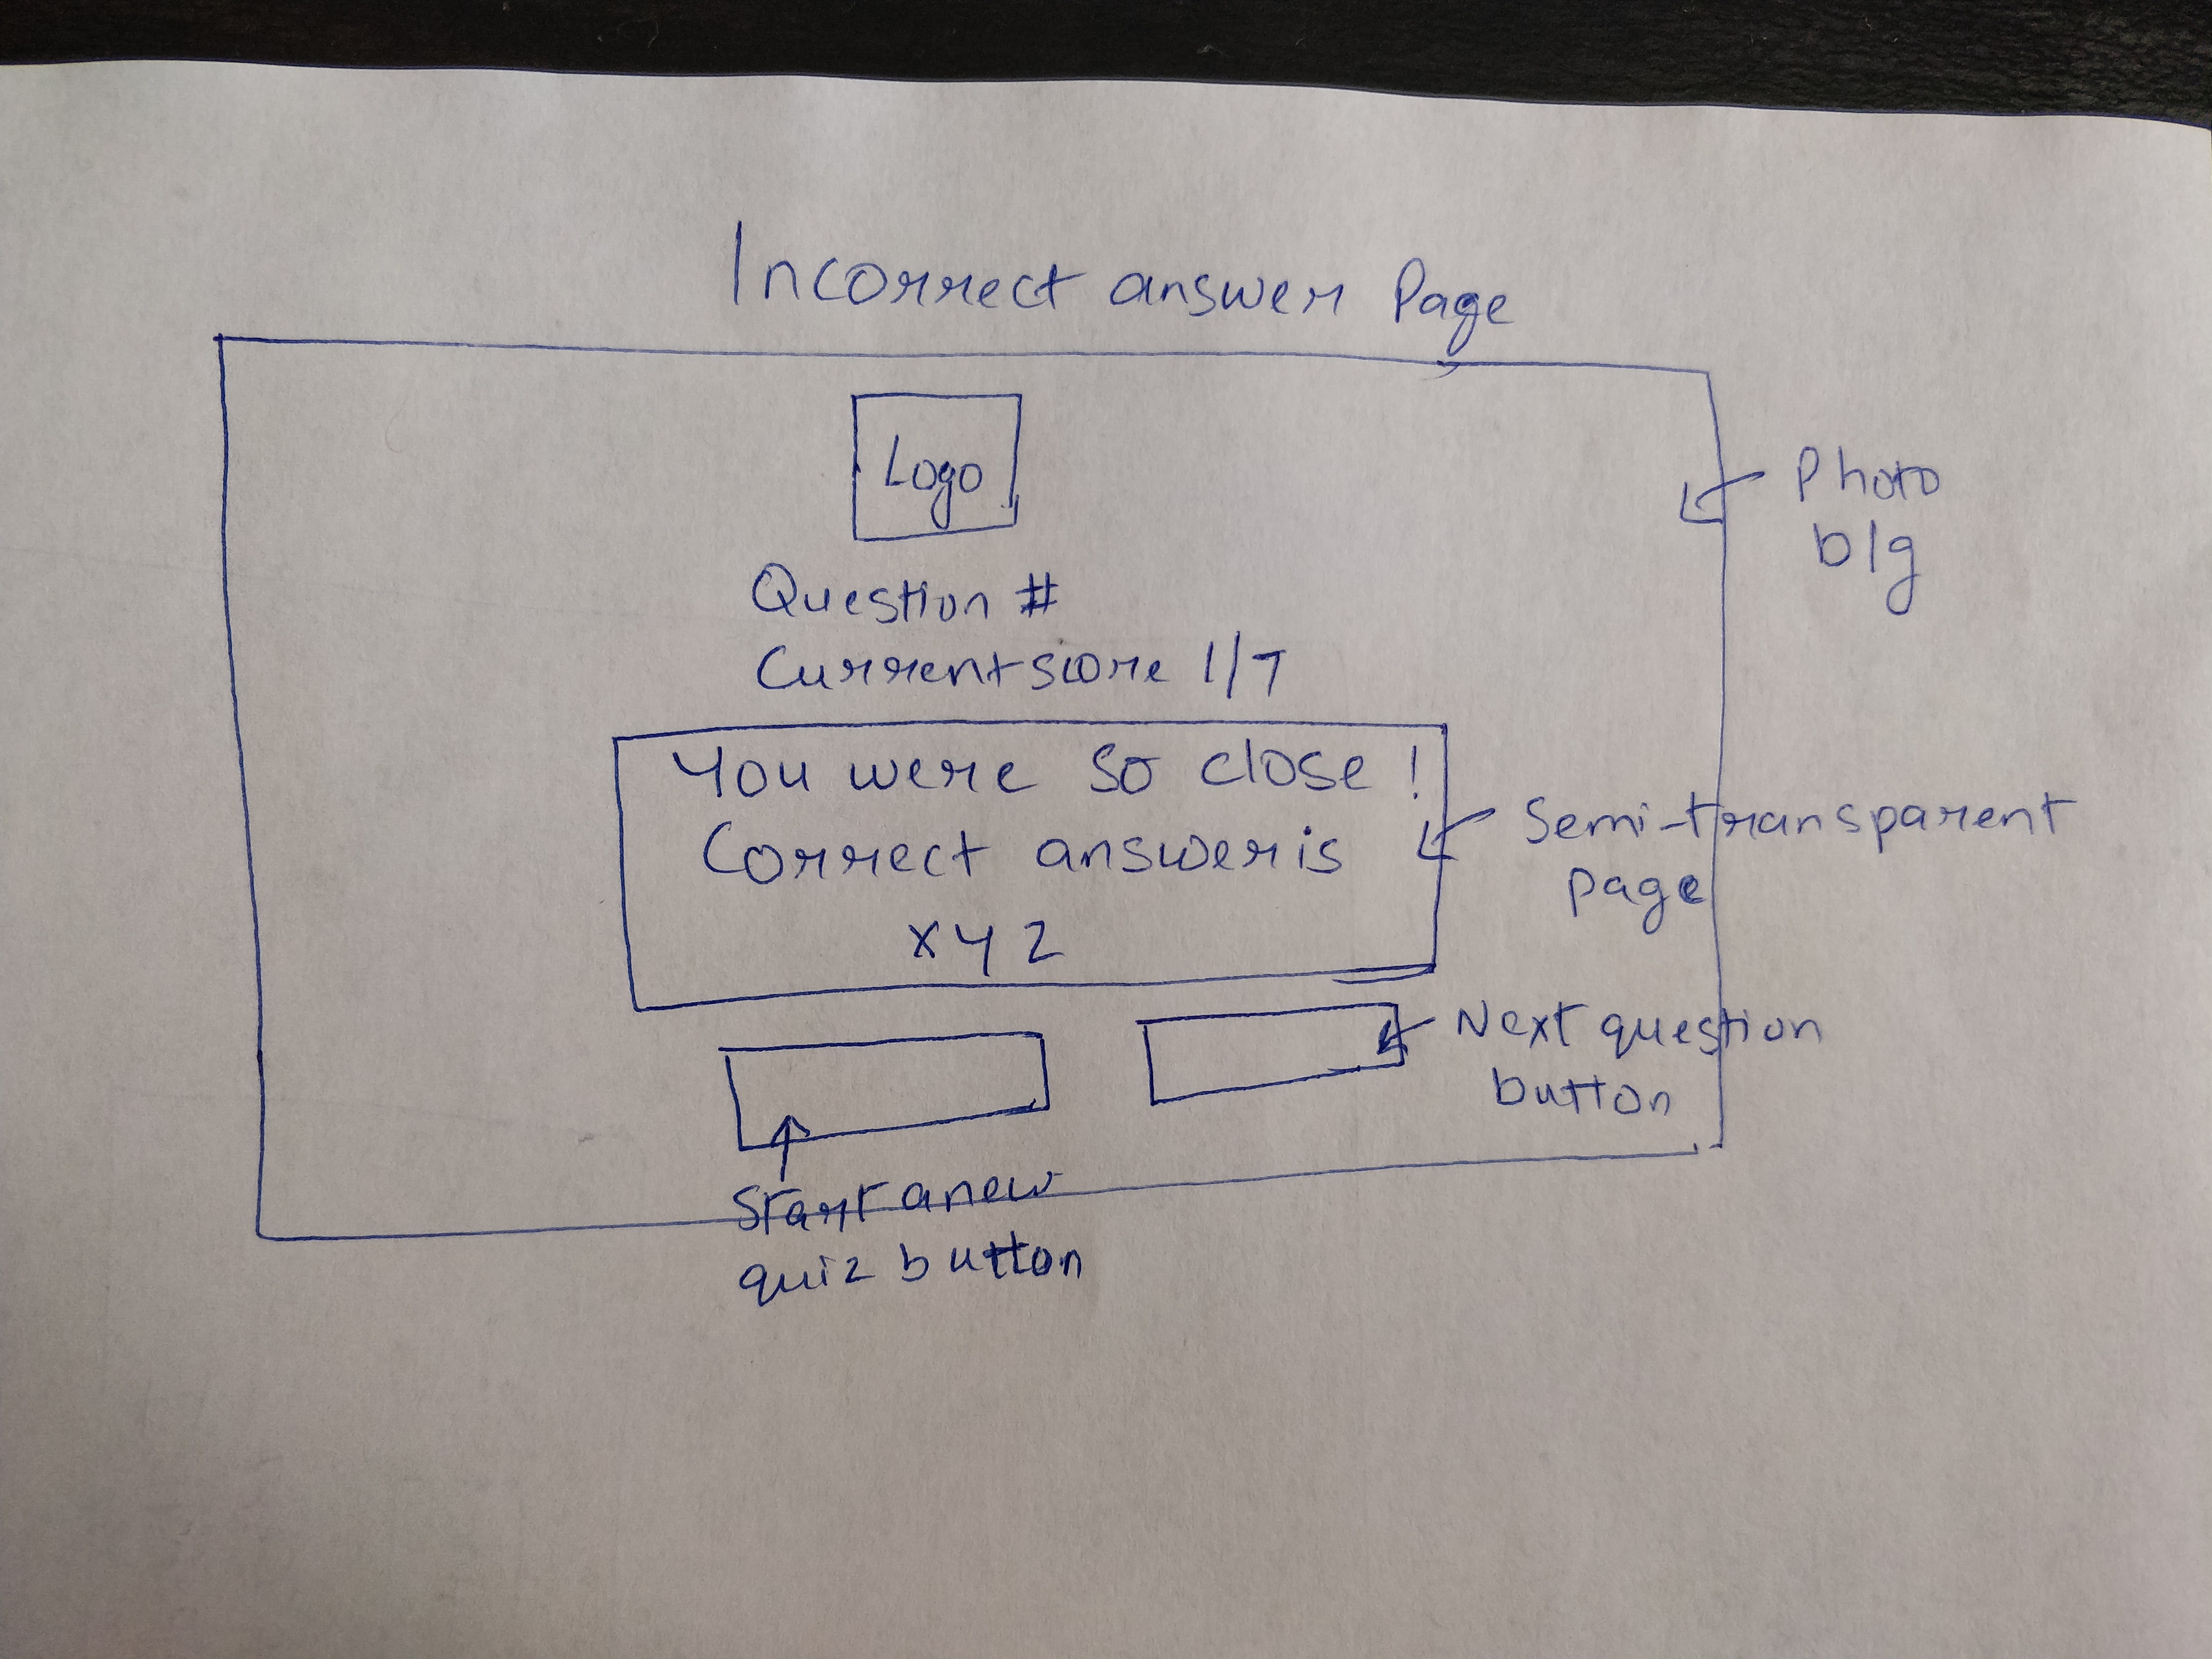 Incorrect answer Page
Logo
Photo
b/g
Question #
Current score 1/7
You were so close!
Correct answer is
xyz
Semi-transparent
page
Next question
button
Start a new
quiz button